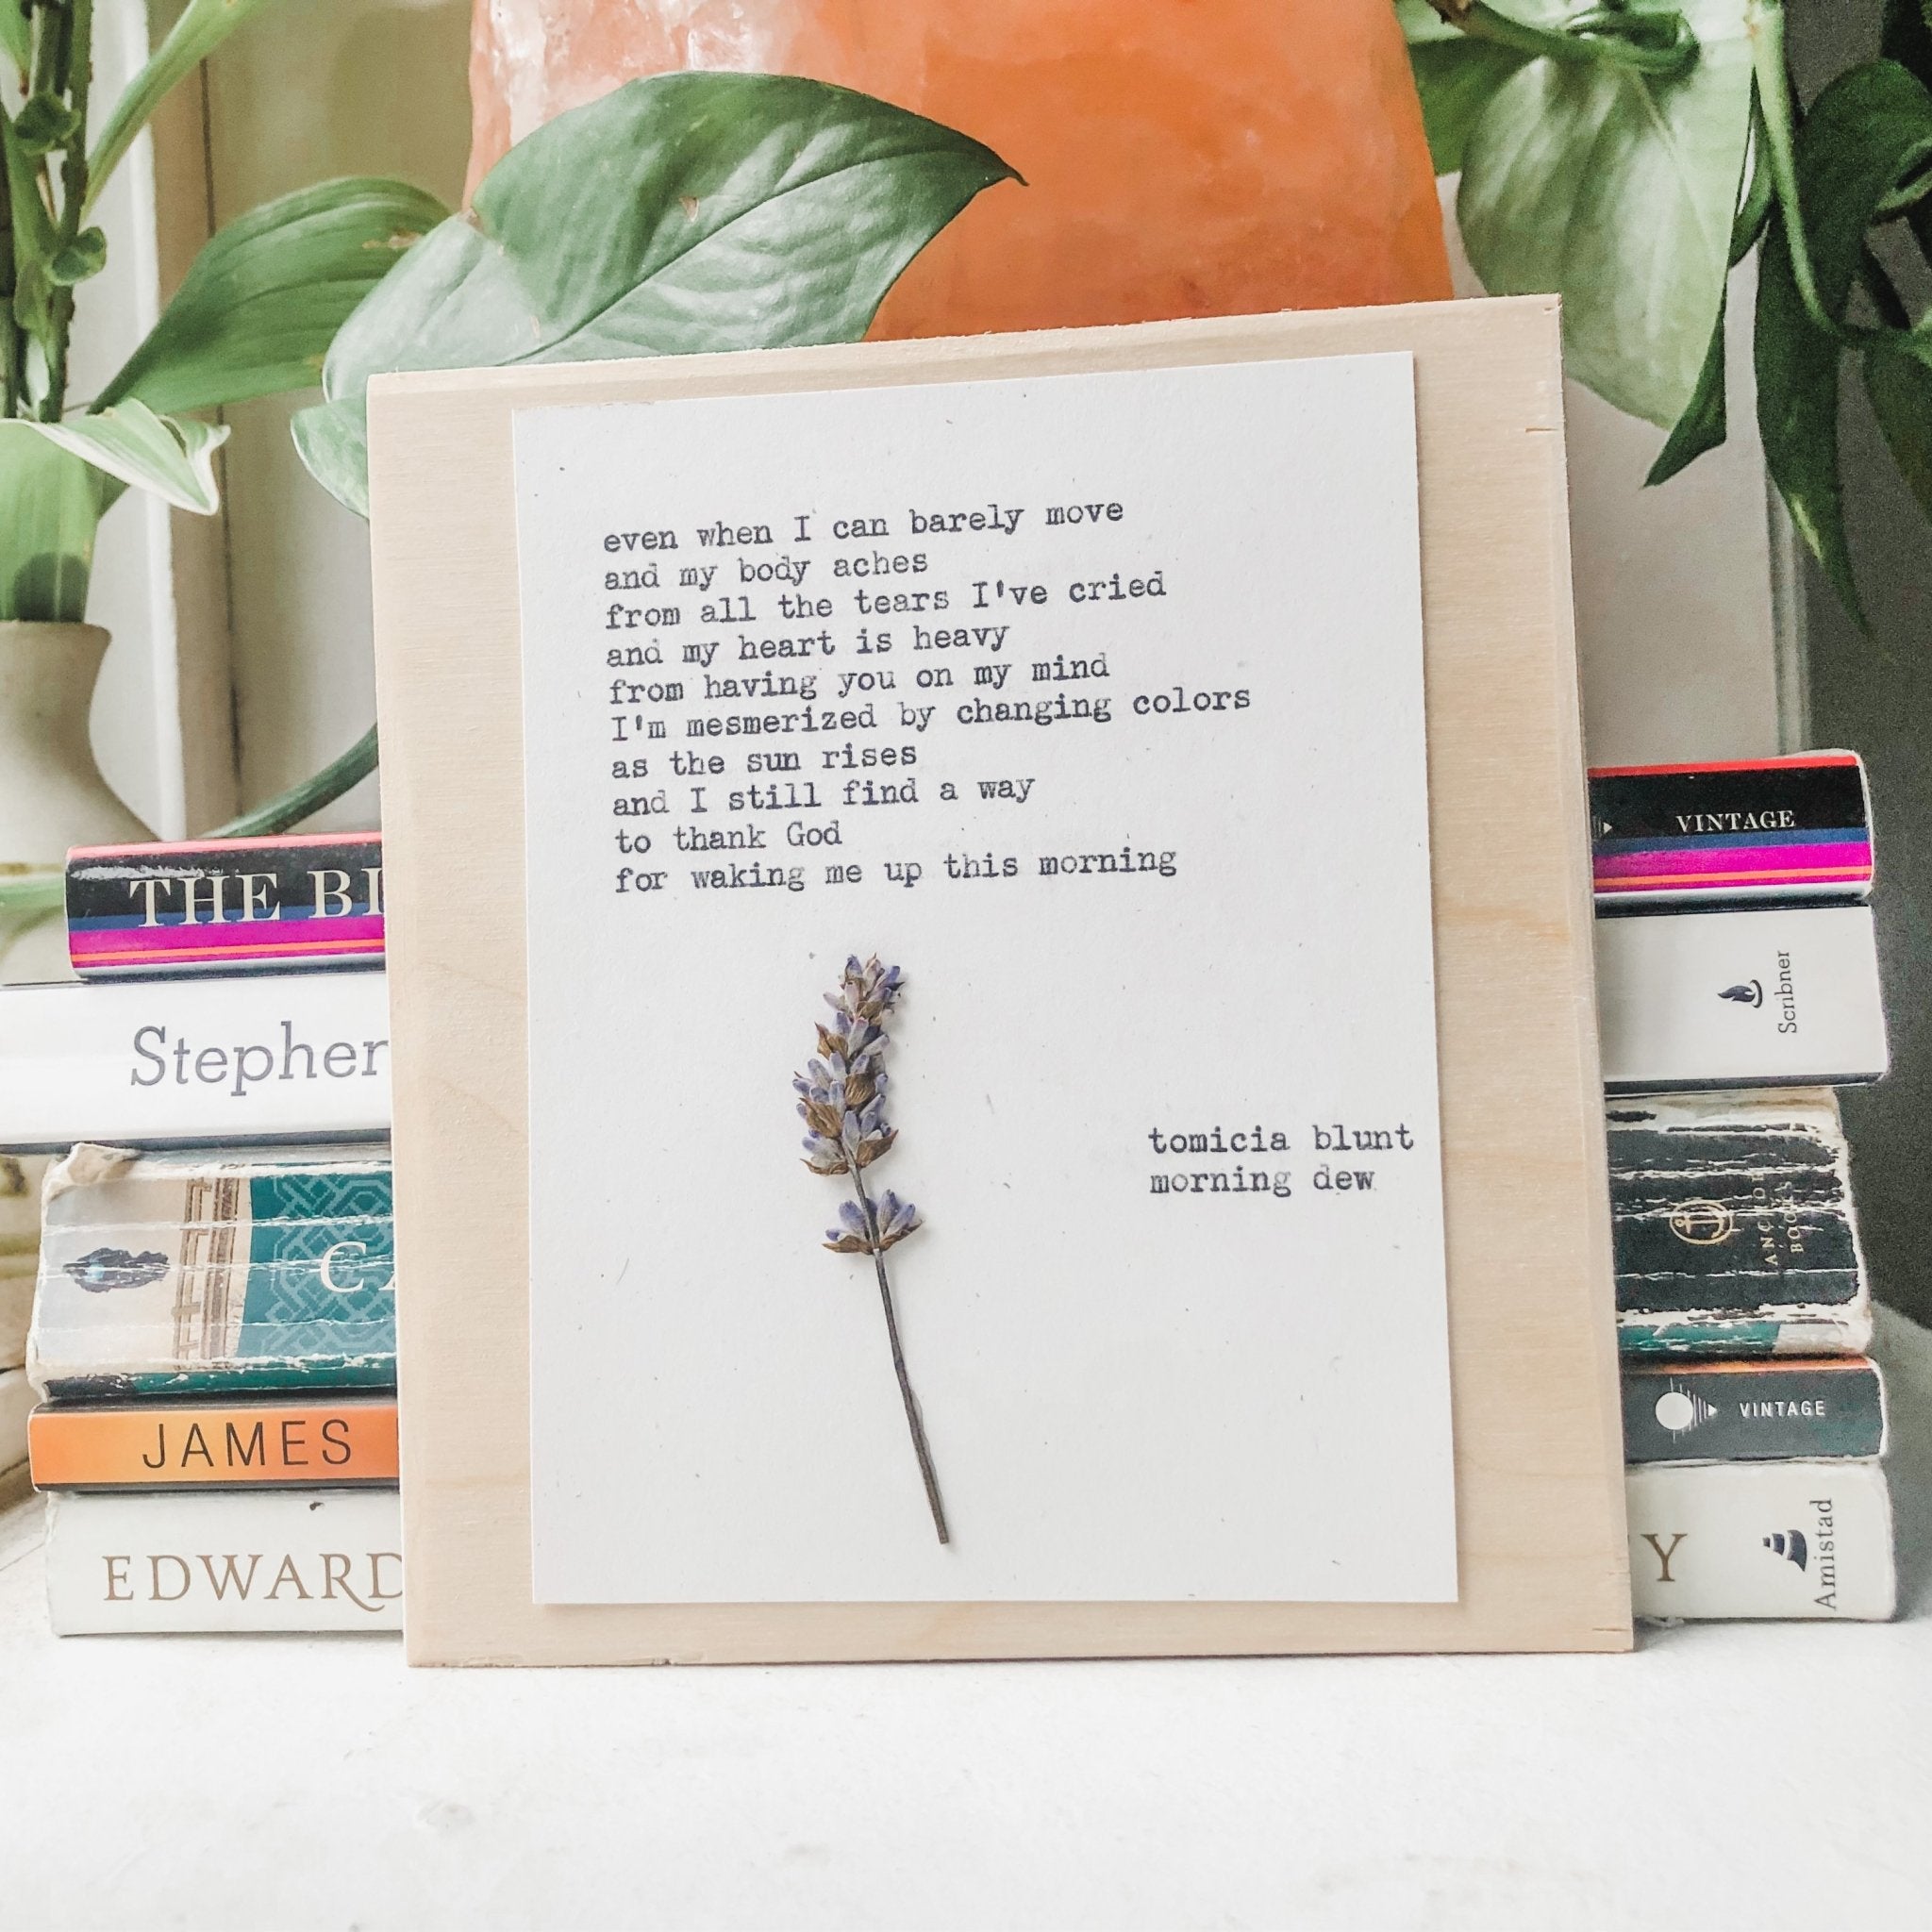 even when I can barely move
and my body aches
from all the tears I've cried
and my heart is heavy
from having you on my mind
I'm mesmerized by changing colors
as the sun rises
and I still find a way
to thank God
for waking me up this morning
tomicia blunt
morning dew
THE
VINTAGE
Scribner
ANCHOR
BOOKS
JAMES
VINTAGE
EDWARD
Y
Amistad